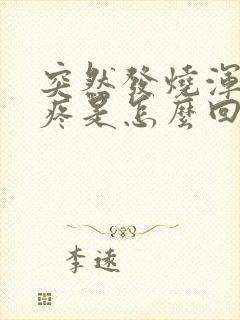 突然發燒渾
疼是怎麼回
李遠